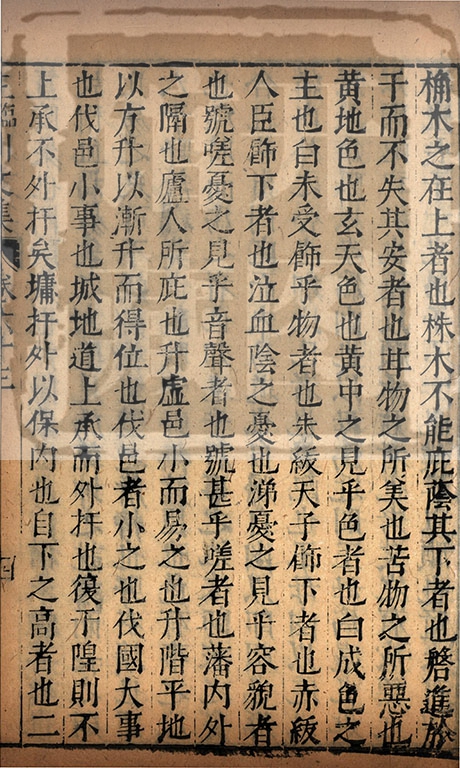 桷木之在上者也株木不能庇䕃其下者也磐進於
干而不失其安者也甘物之所美也苦物之所惡也
黃地色也玄天色也黃中之見乎色者也白成色之
主也白未受飾乎物者也朱紱天子飾下者也赤紱
人臣飾下者也泣血陰之憂也涕憂之見乎容貌者
也號嗟憂之見乎音聲者也號甚乎嗟者也藩内外
之隔也廬人所庇也升虛邑小而易之也升階平地
以方升以漸升而得位也伐邑者小之也伐國大事
也伐邑小事也城地道上承而外扞也復于隍則不
上承不外扞矣墉扞外以保内也自下之高者也二
王臨川文集 卷六十三